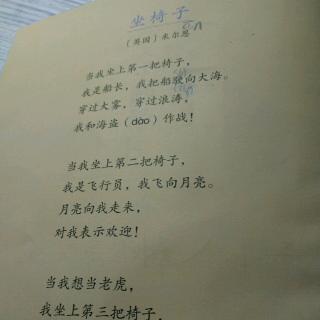 坐椅子
（英国）米尔恩
当我坐上第一把椅子，
我是船长，我把船驶向大海。
穿过大雾，穿过浪涛，
我和海盗（dào）作战！
当我坐上第二把椅子，
我是飞行员，我飞向月亮。
月亮向我走来，
对我表示欢迎！
当我想当老虎，
我坐上第三把椅子，